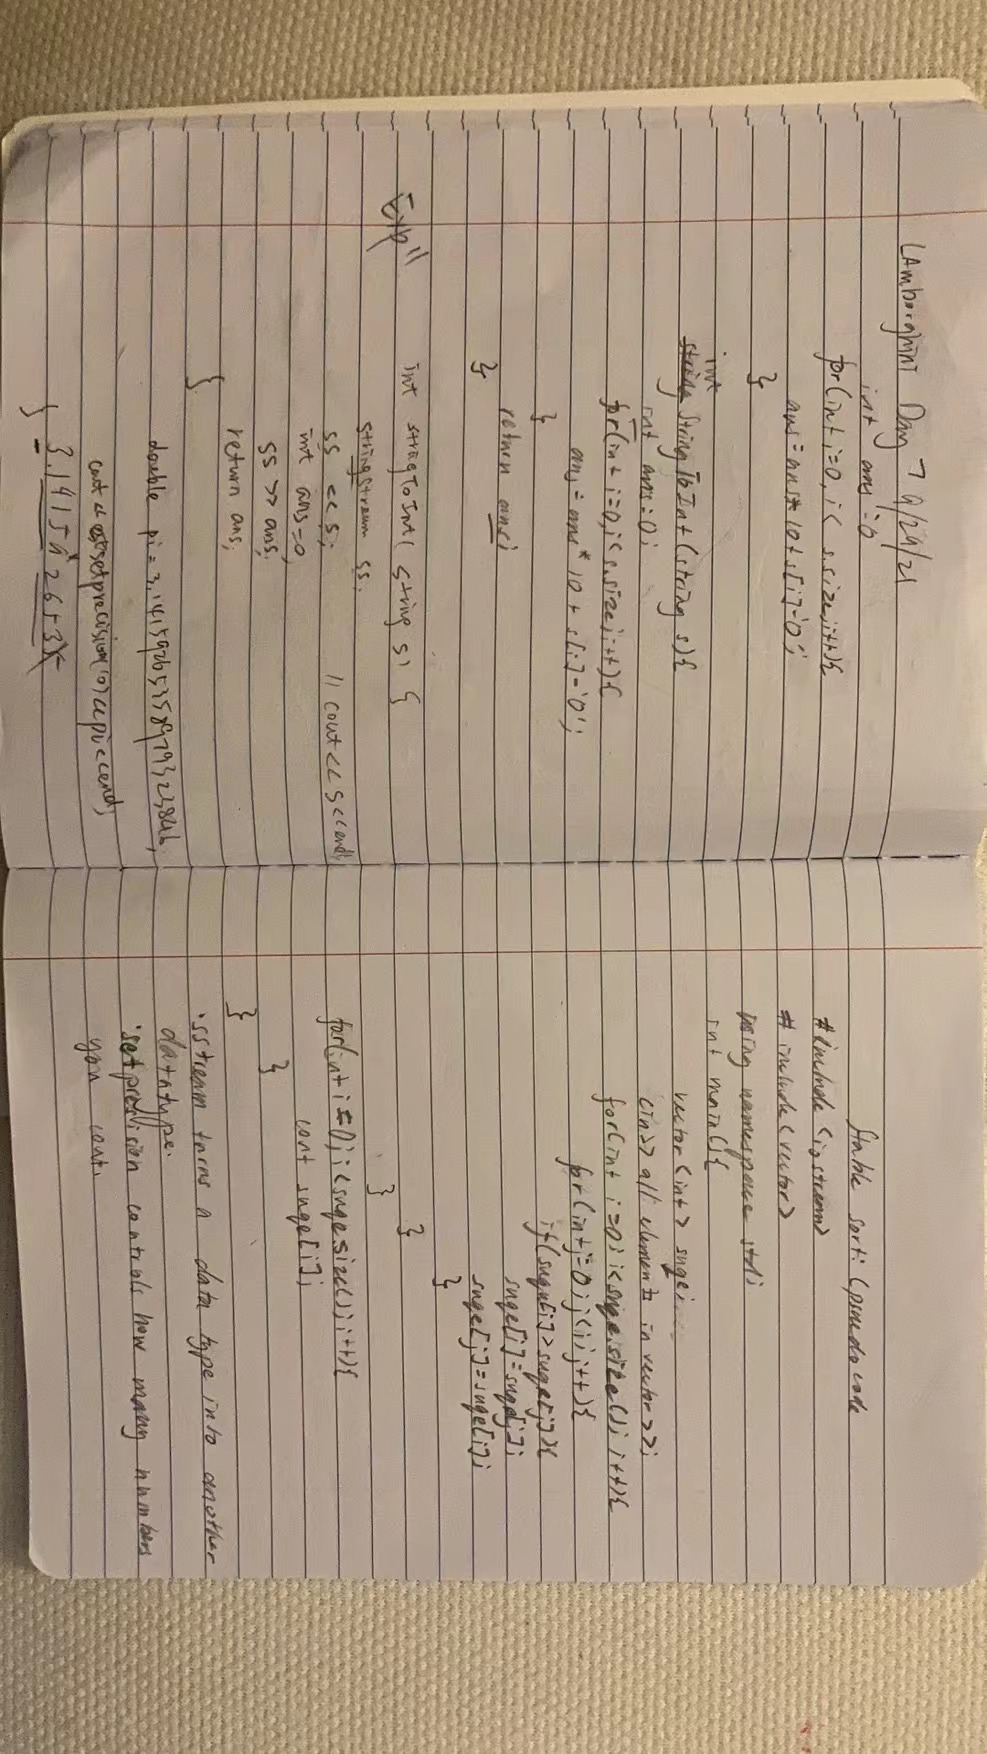 Lamborghini Day 7 9/29/21
int ans=0
for(int i=0, i< s.size, i++){
ans=ans*10+s[i]-'0';
}
int
string StringToInt(string s){
int ans=0;
for(int i=0; i<s.size; i++){
ans=ans*10+s[i]-'0';
}
return ans;
}
int stringToInt( string s) {
stringstream ss;
ss << s; // cout << s << endl;
int ans=0
ss >> ans;
return ans;
}
double pi=
cout << setprecision(0)<<pi<<endl;
}
Stable sort: (pseudo code
#include <iostream>
#include <vector>
using namespace std;
int main(){
vector<int> suge;
cin>> all elements in vector>>;
for(int i=0; i<suge.size(); i++){
for(int j=0; j<i; j++){
if(suge[i]>suge[j]){
suge[i]=suge[j];
suge[j]=suge[i];
}
}
}
for(int i=0; i<suge.size(); i++){
cout suge[i];
}
}
·sstream turns a data type into another
datatype.
·setprecision controls how many numbers
you cout.